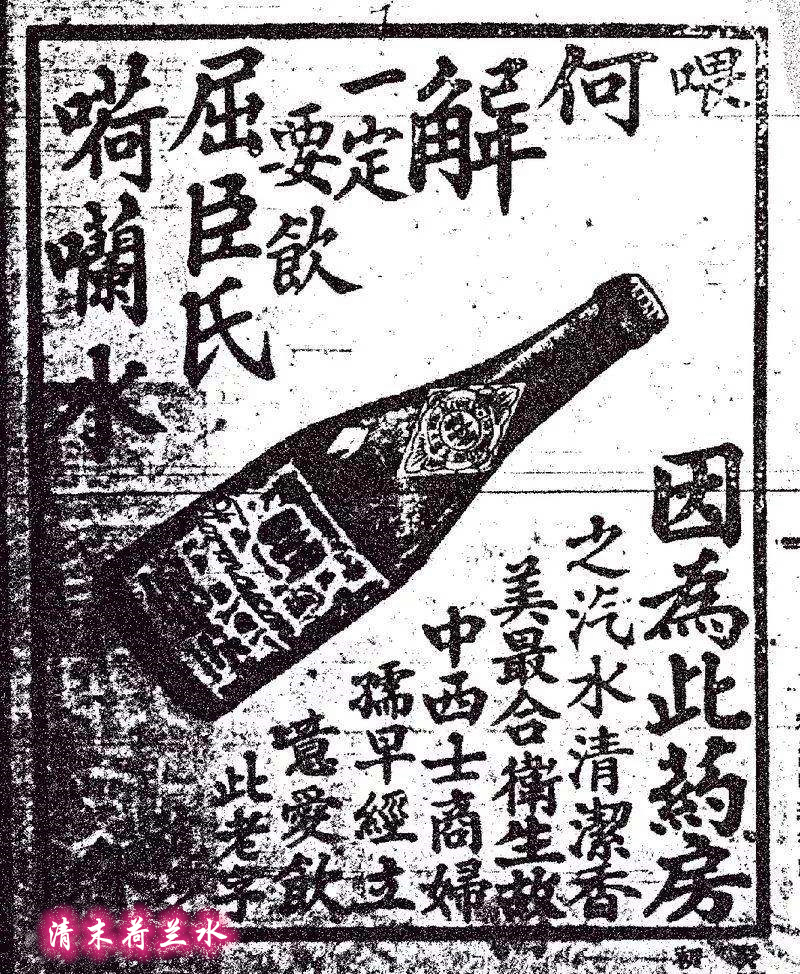 喂
何
解
一定
要飲
屈臣氏
嗬囒水
因為此葯房
之汽水清潔香
美最合衛生故
中西士商婦
孺早經立
意愛飲
此老字
清末荷兰水